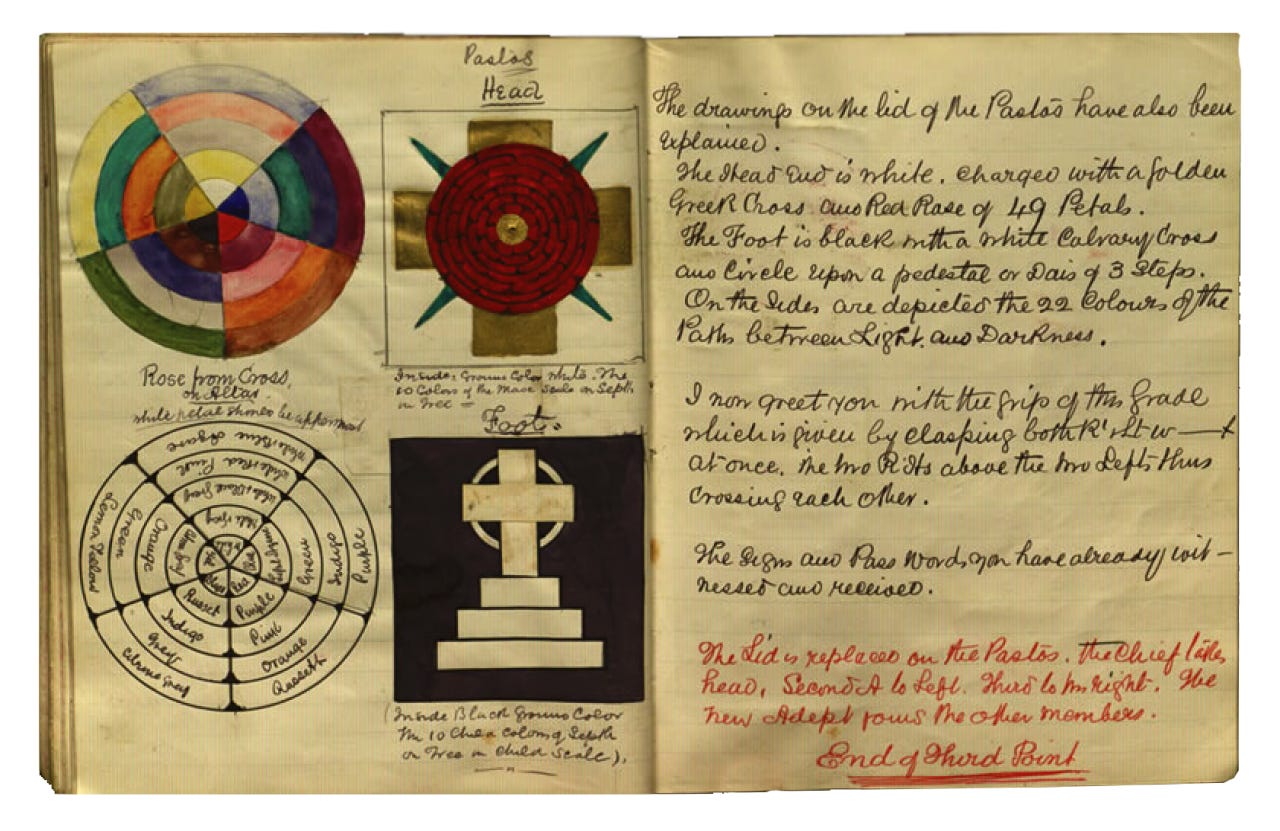 Pastos
Head
Rose from Cross,
on Altar.
white petal should be uppermost
Inside, Ground Color white. The
10 Colors of the Mace Scale on Seph
in Tree =
Foot.
White Blue Azure
White & Red Pink
White & Black Gray
Lemon Yellow
Green
Orange
Green
Indigo
Purple
Russet
Indigo
Grey
Citrine Grey
Purple
Pink
Orange
Russeth
Red
(Inside Black Ground Color
The 10 Colors of Seph
on Tree in Child Scale).
The drawings on the lid of the Pastos have also been
explained.
The Head End is white. charged with a golden
Greek Cross and Red Rose of 49 Petals.
The Foot is black with a white Calvary Cross
and Circle upon a pedestal or Dais of 3 Steps.
On the Sides are depicted the 22 Colours of the
Paths between Light and Darkness.
I now greet you with the grip of this Grade
which is given by clasping both
at once. The two R. Hs above the two Lefts thus
crossing each other.
The Signs and Pass Words you have already wit-
nessed and received.
The Lid is replaced on the Pastos. the Chief takes
head, Second A to Left. Third to his right. The
new Adept joins the other members.
End of Third Point